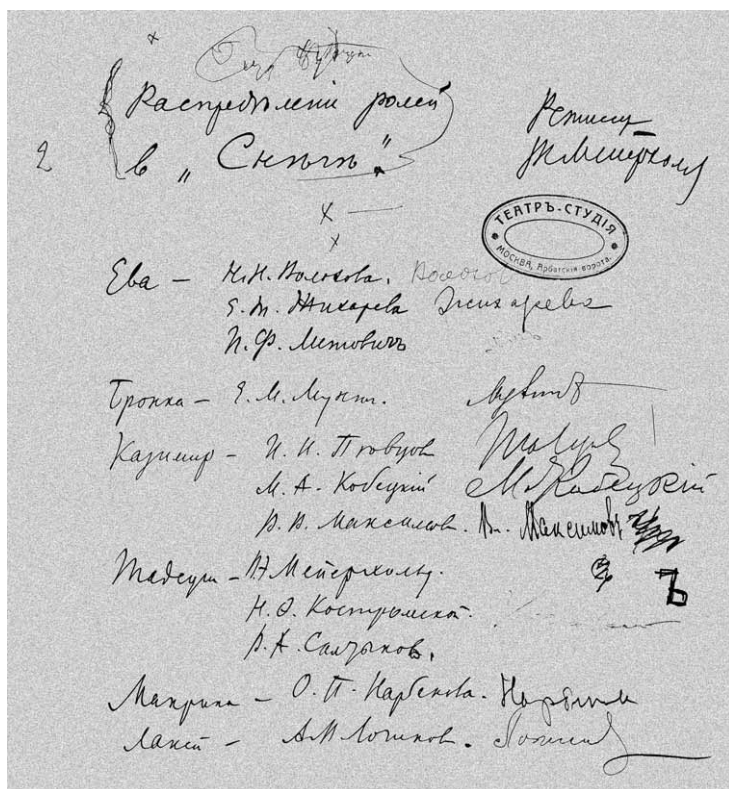 Распредѣленіе ролей
2 в „Снѣгѣ“.
Режиссер
В Мейерхольд
ТЕАТРЪ-СТУДІЯ
МОСКВА, Арбатскія ворота.
Ева — Н.Н. Волохова.
Е. М. Жихарева Жихарева
Тронка — Е. М. Мунт. Мунтъ
Казимир — И. Н. Певцов Певцов
М. А. Кобецкій М. Кобецкій
В. В. Максимов. Вл. Максимовъ
Тадеуш — В Мейерхольд.
Ъ
Н. Ѳ. Костромской.
В. А. Салтыков.
Макрина — О. П. Нарбекова. Нарбекова
Лакей — А М Логинов. Логинов